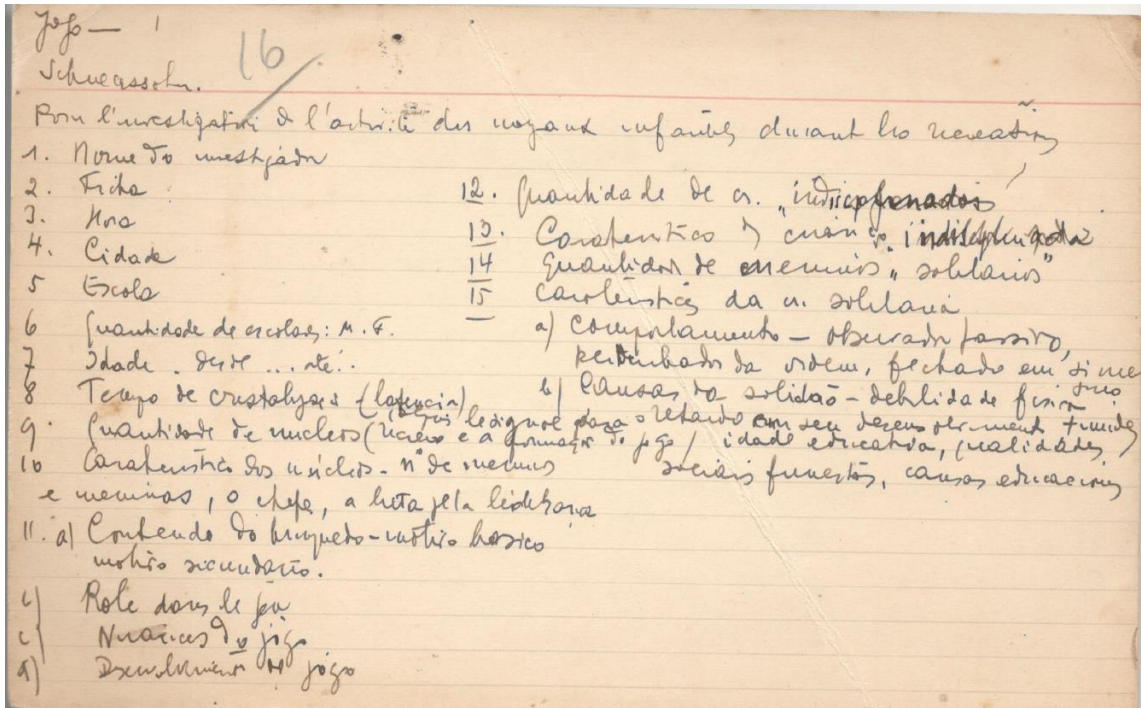 Jogo — 1
16
Schneerssohn.
Pour l'investigation de l'activité des noyaux infantiles durant les récréations
1. Nome do investigador
2. Ficha
3. Hora
4. Cidade
5 Escola
6 Quantidade de escolares: M. F.
7 Idade . desde ... até..
8 Tempo de cristalização (latencia)
9. Quantidade de nucleos (
10 Caraterística dos núcleos - nº de meninos
e meninas, o chefe, a luta pela liderança
11. a) Contendo do brinquedo - motivo basico
motivo secundario.
b) Role dans le jeu
c) Nuances do jôgo
d) Desenvolvimento do jôgo
12. Quantidade de cr. "indisciplinados"
13. Caraterística da criança indisciplinada
14 Quantidade de meninos "solitarios"
15 Caraterísticas da cr. solitaria
a) Comportamento – observador passivo,
perturbador da ordem, fechado em si mesmo
b) Causas da solidão – debilidade fisica
retardo em seu desenvolvimento
idade educativa, qualidades
sociais funestas, causas educacionais